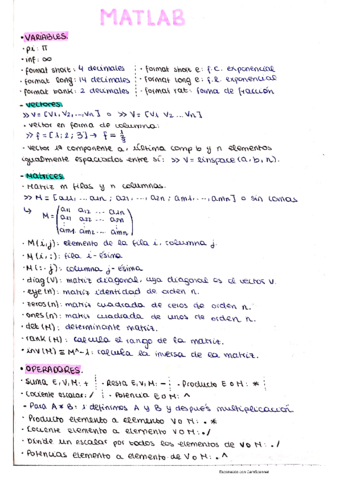 MATLAB
· VARIABLES.
· pi: π
· inf: ∞
· format short: 4 decimales · format short e: f.c. exponencial
· format long: 14 decimales · format long e: f.l. exponencial
· format bank: 2 decimales · format rat: forma de fracción
- Vectores
>> V = [V1, V2, ..., Vn] o >> V = [V1 V2 ... Vn]
· Vector en forma de columna:
>> f = [1; 2; 3] →
· Vector 1ª componente a, última comp b y n elementos
igualmente espaciados entre sí: >> V = linspace (a, b, n).
- Matrices
· Matriz m filas y n columnas.
>> M = [a11, ... a1n ; a21, ... a2n ; am1, ..., amn] o sin comas
↳ M = (a11 a12 ... a1n
a21 a22 ... a2n
am1 am2 ... amn)
· M(i,j): elemento de la fila i, columna j.
· M(i,:): fila i-ésima
· M(:,j): columna j-ésima
· diag(V): matriz diagonal, cuya diagonal es el vector V.
· eye(n): matriz identidad de orden n.
· zeros(n): matriz cuadrada de ceros de orden n.
· ones(n): matriz cuadrada de unos de orden n.
· det(M): determinante matriz.
· rank(M): calcula el rango de la matriz.
· inv(M) ≡ M^-1: calcula la inversa de la matriz.
· OPERADORES.
· Suma E,V,M: + · Resta E,V,M: - · Producto E o M: *
· Cociente escalar: / · Potencia E o M: ^
- Para A * B = 1 definimos A y B y después multiplicación
· Producto elemento a elemento V o M: .*
· Cociente elemento a elemento V o M: ./
· Divide un escalar por todos los elementos de V o M: ./
· Potencias elemento a elemento de V o M: .^